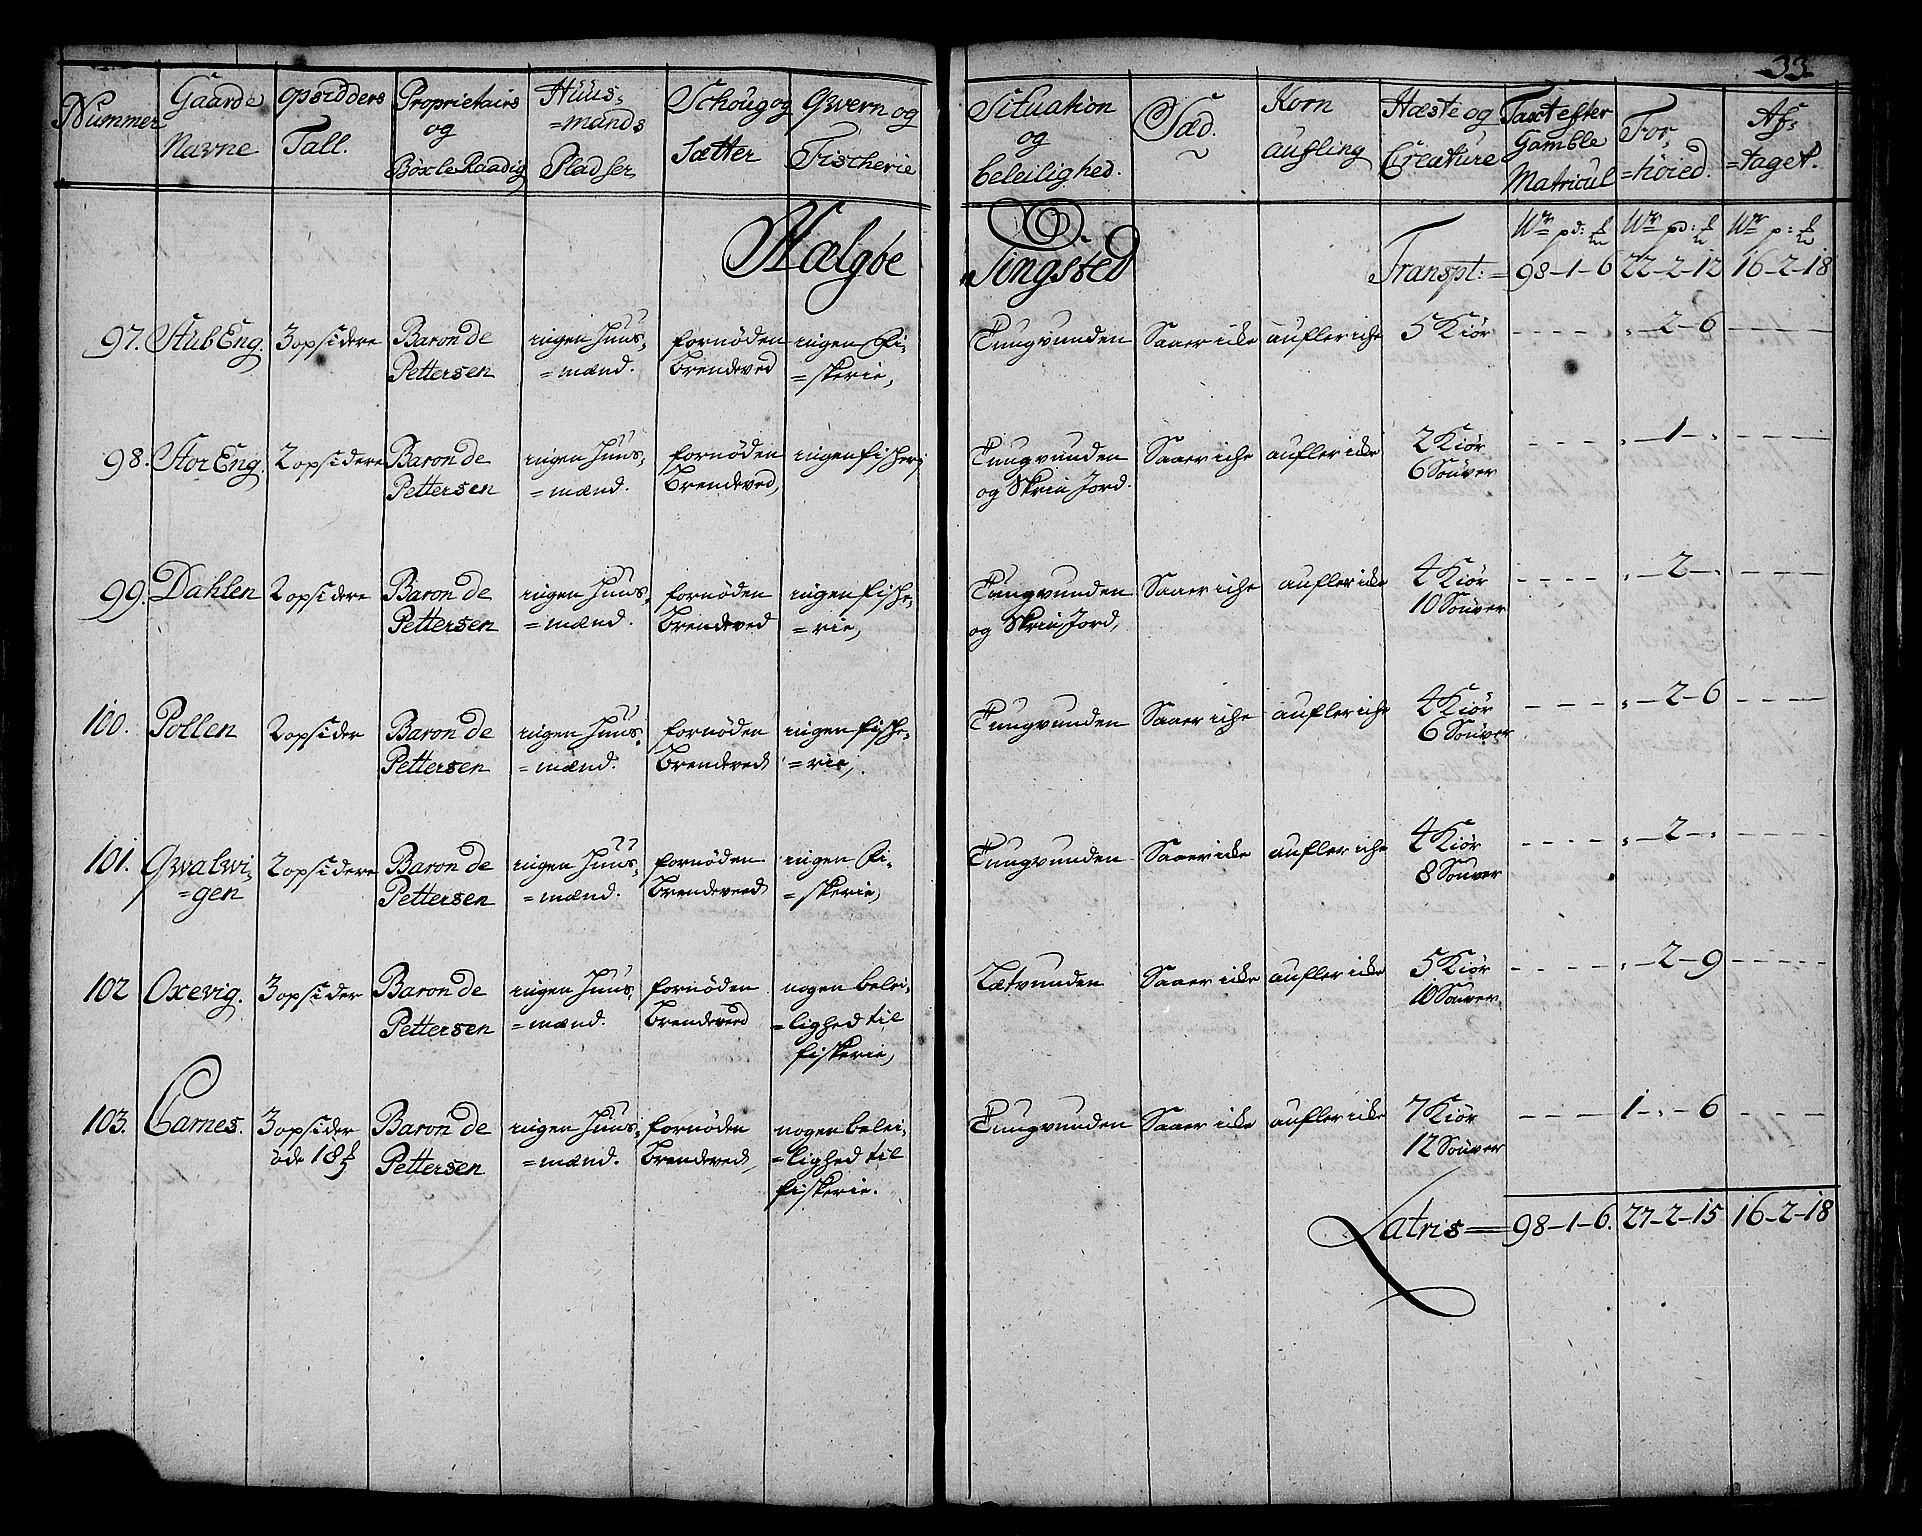 33
Nummer | Gaarde Navne | opsidders Tall. | Proprietairs og Böxle Raadig | Huus=mands Pladser | Schoug og Sætter | Qvern og Fischerie | Situation og beleilighed. | Sæd. | Korn aufling | Hæste og Creature | Taxt efter Gamble Matricul | For=höied. | Af=taget.
Hælgöe Tingsted
Wr pd: | Wr pd: | Wr p:
Transpt:= 98-1-6 | 22-2-12 | 16-2-18
97. | Stub Eng. | 3 opsidere | Baron de Pettersen | ingen Huus=mænd. | fornöden Brendeved | ingen Fi=skerie, | Tungvunden | Saaer icke | aufler iche | 5 Kiör | - - - - | „-2-6 | - - - -
98. | Stor Eng. | 2 opsidere | Baron de Pettersen | ingen Huus=mænd. | fornöden Brendeved, | ingen fisheri | Tungvunden og Skrin Jord. | Saaer iche | aufler icke | 2 Kiör 6 Souver | - - - - | „-1-„ | - - - -
99. | Dahlen | 2 opsidere | Baron de Pettersen | ingen Huus=mænd. | fornöden Brendeved | ingen fishe=rie, | Tungvunden og Skrin Jord, | Saaer iche | aufler icke | 4 Kiör 10 Souver | - - - - | „-2-„ | - - - -
100. | Pollen | 2 opsider | Baron de Pettersen | ingen Huus=mænd. | fornöden Brendeved | ingen fishe=rie, | Tungvunden | Saaer iche | aufler iche | 4 Kiör 6 Souver | - - - - | „-2-6 | - - - -
101. | Qvalwi=gen | 2 opsidere | Baron de Pettersen | ingen Huus=mænd. | fornöden Brendeved | ingen Fi=skerie, | Tungvunden | Saaer icke | aufler iche | 4 Kiör 8 Souver | - - - - | „-2-„ | - - - -
102 | Oxevig. | 3 opsider | Baron de Pettersen | ingen Huus=mænd. | fornöden Brendeved | nogen belei=lighed til fiskerie, | Letvunden | Saaer icke | aufler icke | 5 Kiör 10 Souver. | - - - - | „-2-9 | - - - -
103. | Carnes. | 3 opsider öde 18 | Baron de Pettersen | ingen Huus=mænd. | fornöden Brendeved, | nogen belei=lighed til fiskerie. | Tungvunden | Saaer icke | aufler icke | 7 Kiör 12 Souver | - - - - | 1-„-6 | - - - -
Latris= 98-1-6. | 27-2-15 | 16-2-18